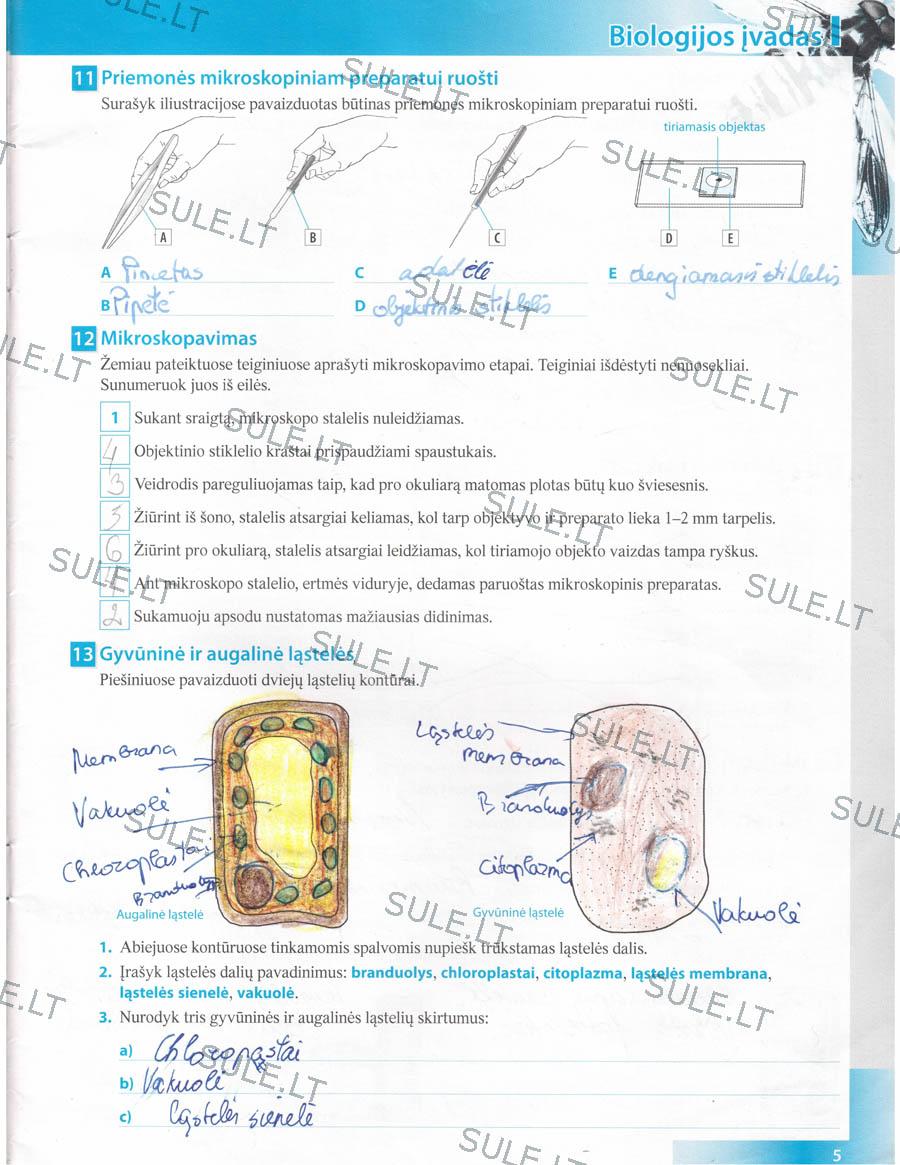 Biologijos įvadas
11 Priemonės mikroskopiniam preparatui ruošti
Surašyk iliustracijose pavaizduotas būtinas priemones mikroskopiniam preparatui ruošti.
tiriamasis objektas
A B C D E
A Pincetas C adatėlė E dengiamasis stiklelis
B Pipetė D objektinis stiklelis
12 Mikroskopavimas
Žemiau pateiktuose teiginiuose aprašyti mikroskopavimo etapai. Teiginiai išdėstyti nenuosekliai.
Sunumeruok juos iš eilės.
1 Sukant sraigtą, mikroskopo stalelis nuleidžiamas.
4 Objektinio stiklelio kraštai prispaudžiami spaustukais.
3 Veidrodis pareguliuojamas taip, kad pro okuliarą matomas plotas būtų kuo šviesesnis.
Žiūrint iš šono, stalelis atsargiai keliamas, kol tarp objektyvo ir preparato lieka 1–2 mm tarpelis.
6 Žiūrint pro okuliarą, stalelis atsargiai leidžiamas, kol tiriamojo objekto vaizdas tampa ryškus.
Ant mikroskopo stalelio, ertmės viduryje, dedamas paruoštas mikroskopinis preparatas.
2 Sukamuoju apsodu nustatomas mažiausias didinimas.
13 Gyvūninė ir augalinė ląstelės
Piešiniuose pavaizduoti dviejų ląstelių kontūrai.
Membrana
Vakuolė
Chloroplastai
Branduolys
Augalinė ląstelė
Ląstelės
membrana
Branduolys
Citoplazma
Vakuolė
Gyvūninė ląstelė
1. Abiejuose kontūruose tinkamomis spalvomis nupiešk trūkstamas ląstelės dalis.
2. Įrašyk ląstelės dalių pavadinimus: branduolys, chloroplastai, citoplazma, ląstelės membrana,
ląstelės sienelė, vakuolė.
3. Nurodyk tris gyvūninės ir augalinės ląstelių skirtumus:
a) Chloropąstai
b) Vakuolė
c) Ląstelės sienelė
5
SULE.LT